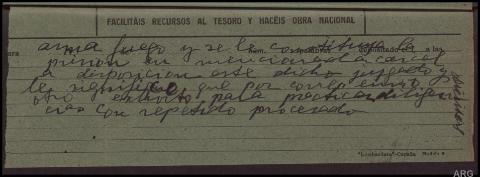 FACILITÁIS RECURSOS AL TESORO Y HACÉIS OBRA NACIONAL
arma fuego y se le constituya la
prision en mencionada carcel
a disposicion este dicho juzgado y
les significo que por correo envio
otro exhorto para practicar diligen
cias con repetido procesado
"Lombardero"-Coruña Modelo 6
ARG